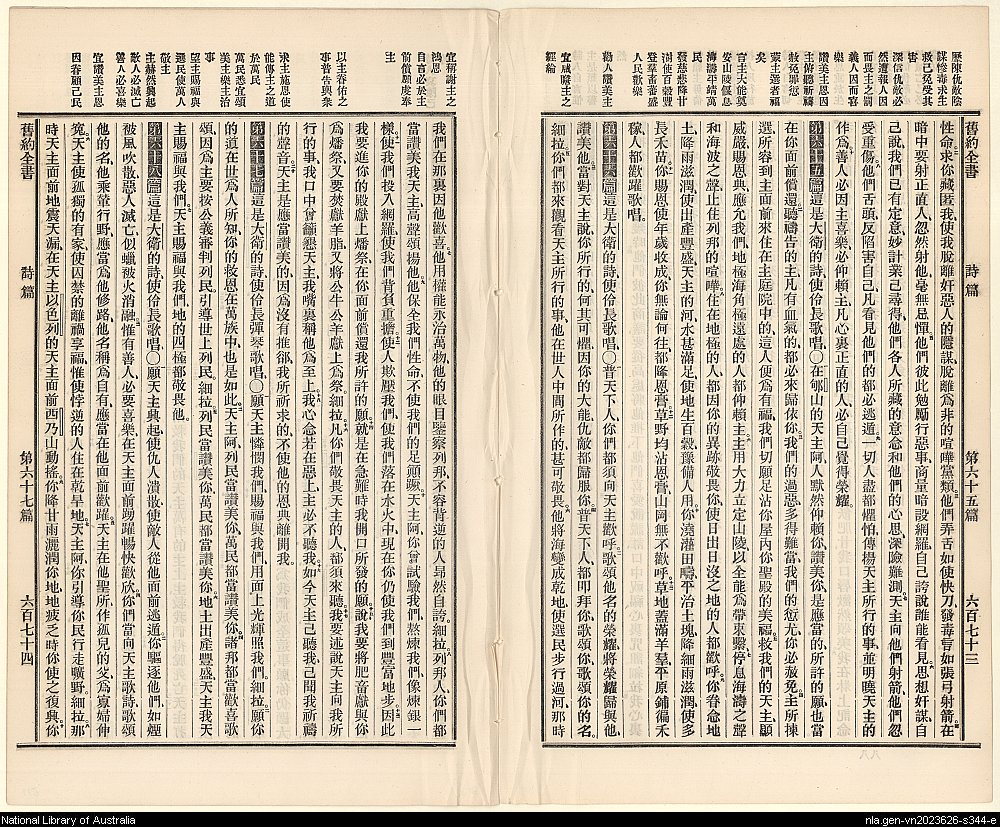 舊約全書 詩篇 第六十五篇 六百七十三
歷陳仇敵陰
謀慘毒求生
救己免受其
害
深信仇敵必
然遭報人因
而畏主之罰
義人因而喜
樂
讚美主恩因
主俯聽祈禱
赦免罪愆
蒙主選者福
矣
言主大能奠
安山陵偃息
海濤靖萬
民
發慈悲降甘
澍使百穀豐
登羣畜蕃盛
人民歡樂
勸人讚美主
宜感隲主之
經綸
性命求你藏匿我使我脫離奸惡人的隱謀脫離為非的喧嘩黨類他們弄舌如使快刀發毒言如張弓射箭在
暗中要射正直人忽然射他毫無忌憚他們彼此勉勵行惡事商量暗設網羅自己誇說誰能看見思想奸謀自
己說我們已有定意妙計業已尋得他們各人所藏的意念和他們的心思深險難測天主向他們射箭他們忽
受重傷他們舌頭反陷害自己凡看見他們的都必逃遁一切人盡都懼怕傳揚天主所行的事並明曉天主的
作為善人必因主喜樂必仰賴主凡心裏正直的人必自己覺得榮耀
第六十五篇這是大衛的詩使伶長歌唱○在郇山的天主阿人默然仰賴你讚美你是應當的所許的願也當
在你面前償還聽禱告的主凡有血氣的都必來歸依你我們的過惡多得難當我們的愆尤你必赦免主所揀
選所容到主面前來住在主庭院中的這人便為有福我們切願足沾你屋內你聖殿的美福救我們的天主顯
威嚴賜恩典應允我們地極海角極遠處的人都仰賴主主用大力立定山陵以全能為帶束繫停息海濤之聲
和海波之聲止住列邦的喧嘩住在地極的人都因你的異跡敬畏你使日出日沒之地的人都歡呼你眷念地
土降雨滋潤使出產豐盛天主的河水甚滿足使地生百穀豫備人用你澆灌田疇平治土塊降細雨滋潤使多
長禾苗你賜恩使年歲收成你無論何往都降恩膏草野均沾恩膏山岡無不歡呼草地蓋滿羊羣平原鋪徧禾
稼人都歡躍歌唱
第六十六篇這是大衛所作的詩使伶長歌唱○普天下人你們都須向天主歡呼歌頌他名的榮耀將榮耀歸與他
讚美他當對天主說你所行的何其可懼因你的大能仇敵都歸服你普天下人都叩拜你歌頌你歌頌你的名
細拉你們都來觀看天主所行的事他在世人中間所作的甚可敬畏他將海變成乾地使選民步行過河那時
宜稱謝主之
鴻恩
自言必於主
前償願虔奉
主
以主眷佑之
事普告與衆
求主施恩使
能傳主之道
於萬民
萬民悉宜頌
美主樂主治
事
望主賜福與
選民使萬人
敬主
主赫然興起
敵人必滅亡
善人必喜樂
宜讚美主恩
因眷顧己民
我們在那裏因他歡喜他用權能永治萬物他的眼目鑒察列邦不容背逆的人昂然自誇細拉列邦人你們都
當讚美我天主高聲頌揚他他保全我們性命不使我們的足顛蹶天主阿你曾試驗我們熬煉我們像煉銀一
樣使我們投入網羅使我們背負重擔使人欺壓我們使我們落在水火中現在你仍使我們到豐富地步因此
我要進你的殿獻上燔祭在你面前償還我所許的願就是在急難時我開口所發的願我要將肥畜獻與你
為燔祭又要焚獻羊脂又將公牛公羊獻上為祭細拉凡你們敬畏天主的人都須來聽我要述說天主向我所
行的事我口中曾籲懇天主我嘴裏稱他為至上我心念若在惡上主必不聽我如今天主已聽我已聞我祈禱
的聲音天主是應當讚美的因為沒有推卻我所祈求的不使他的恩典離開我
第六十七篇這是大衛的詩使伶長彈琴歌唱○願天主憐憫我們賜福與我們用面上光輝照我們細拉願你
的道在世為人所知你的救恩在萬族中也是如此天主阿列民當讚美你萬民都當讚美你諸邦都當歡喜歌
頌因為主要按公義審判列民引導世上列民細拉列民當讚美你萬民都當讚美你地土出產豐盛天主我天
主賜福與我們天主賜福與我們地的四極都敬畏他
第六十八篇這是大衛的詩使伶長歌唱○願天主興起使仇人潰散使敵人從他面前逃遁你驅逐他們如煙
被風吹散惡人滅亡似蠟被火消融惟有善人必要喜樂在天主面前踴躍暢快歡欣你們當向天主歌詩歌頌
他的名他乘輦行野應當為他修路他名稱為自有應當在他面前歡躍天主在他聖所作孤兒的父為寡婦伸
冤天主使孤獨的有家使囚禁的離禍享福惟使悖逆的人住在乾旱地天主阿你引導你民行走曠野細拉那
時天主面前地震天漏在天主以色列的天主面前西乃山動搖你降甘雨灑潤你地地疲乏時你使之復興你
舊約全書 詩篇 第六十七篇 六百七十四
National Library of Australia
nla.gen-vn2023626-s344-e